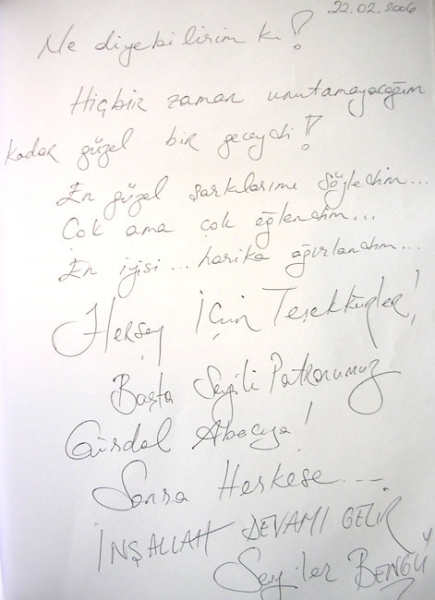 22.02.2006
Ne diyebilirim ki!
Hiçbir zaman unutamayacağım
kadar güzel bir geceydi!
En güzel şarkılarımı söyledim...
Çok ama çok eğlendim...
En iyisi... harika ağırlandım...
Herşey İçin Teşekkürler!
Başta Sevgili Patronumuz
Gürdal Abacıya!
Sonra Herkese...
İNŞALLAH DEVAMI GELİR
BENGÜ